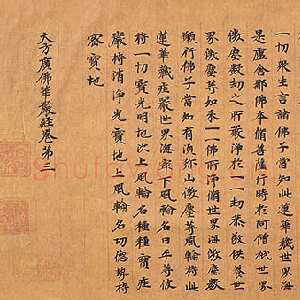 一切眾生言諸佛子當知此蓮華藏世界海
是盧舍那佛本脩菩薩行時於阿僧祇世界
微塵數劫之所嚴淨於一一劫恭敬供養世
界微塵等如來一一佛所淨脩世界海微塵數
願行佛子當知有須弥山微塵等風輪持此
蓮華藏莊嚴世界海最下風輪名曰平等彼
持一切寶光明地次上風輪名種種寶莊
嚴持清淨光寶地次上風輪名功德勢持
密寶地
大方廣佛華嚴經卷第三